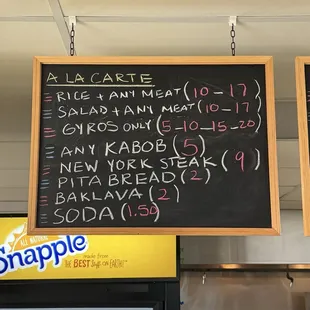 A LA CARTE
RICE + ANY MEAT (10-17)
SALAD + ANY MEAT (10-17)
GYROS ONLY (5-10-15-20)
ANY KABOB (5)
NEW YORK STEAK (9)
PITA BREAD (2)
BAKLAVA (2)
SODA (1.50)
ALL NATURAL
Snapple
MADE FROM
THE BEST STUFF ON EARTH